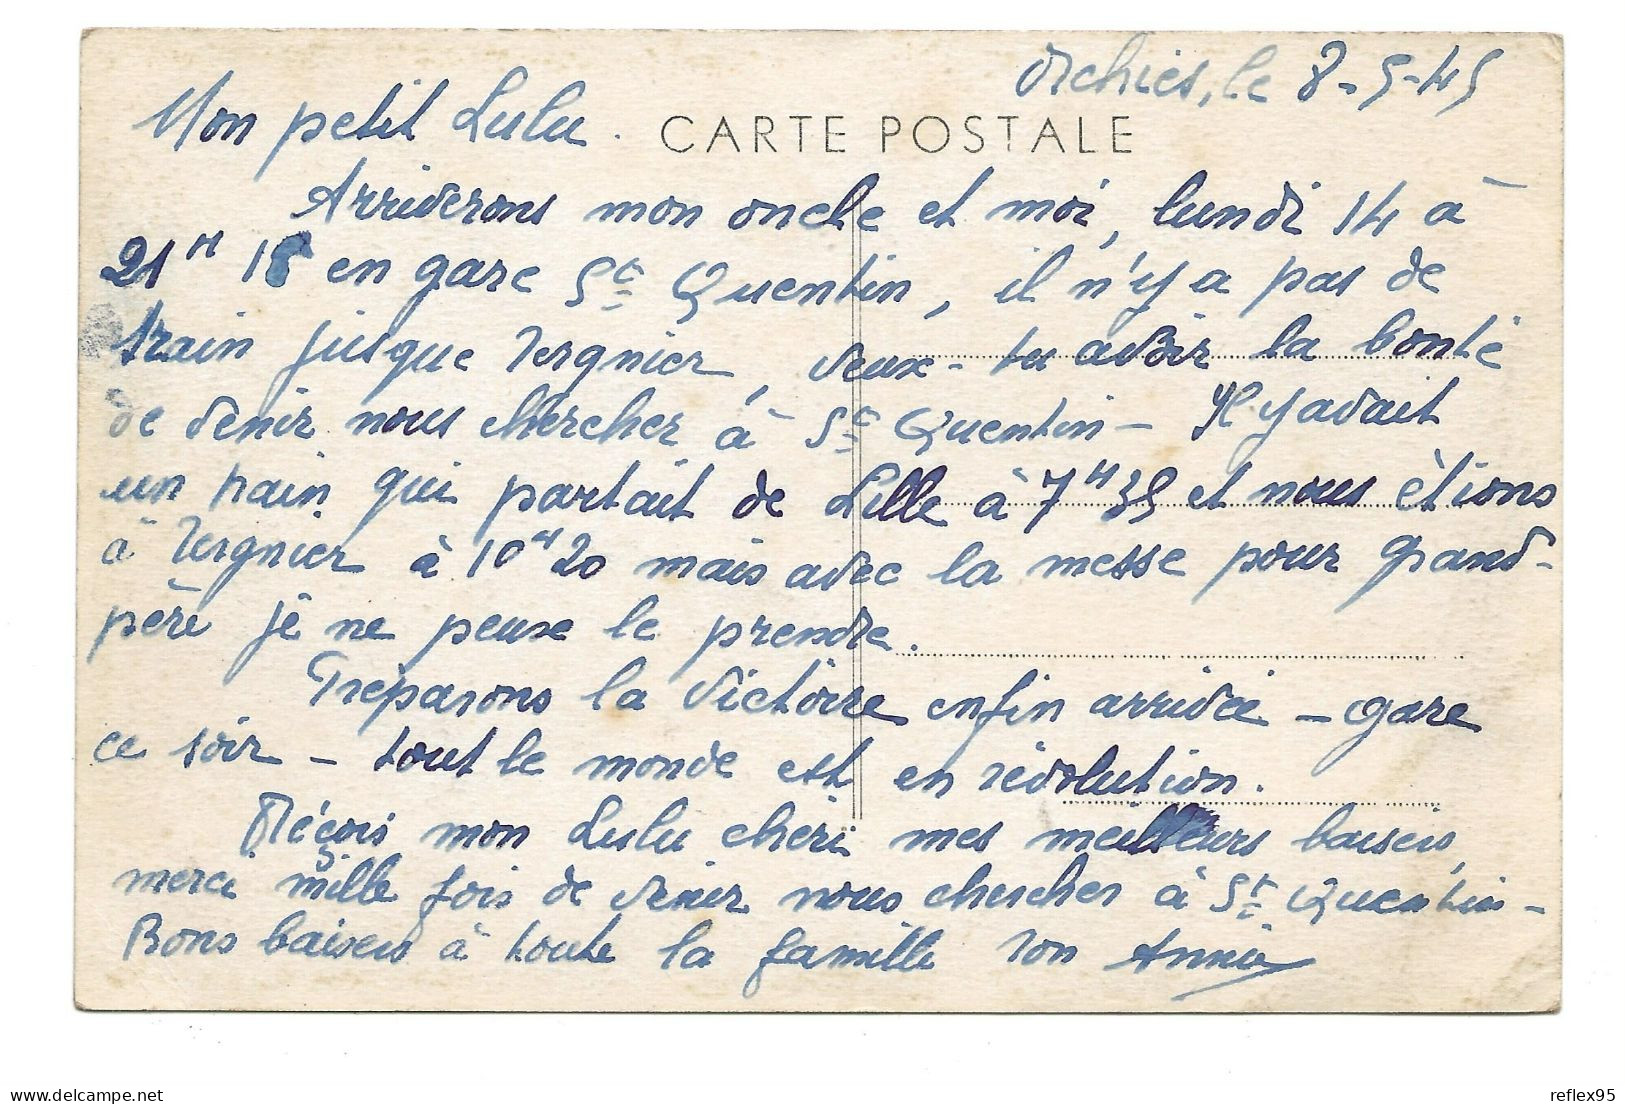 Orchies, le 8-5-45
Mon petit Lulu.
CARTE POSTALE
Arriverons mon oncle et moi, lundi 14 à
21H 18 en gare St Quentin, il n'y a pas de
train jusque Tergnier, veux-tu avoir la bonté
de venir nous chercher à St Quentin - Il y avait
un train qui partait de Lille à 7H35 et nous étions
à Tergnier à 10H20 mais avec la messe pour Grand-
père je ne peux le prendre.
Préparons la Victoire enfin arrivée - gare
ce soir - tout le monde est en révolution.
Reçois mon Lulu chéri mes meilleurs baisers,
merci mille fois de venir nous chercher à St Quentin -
Bons baisers à toute la famille ton Annie
reflex95
delcampe.net